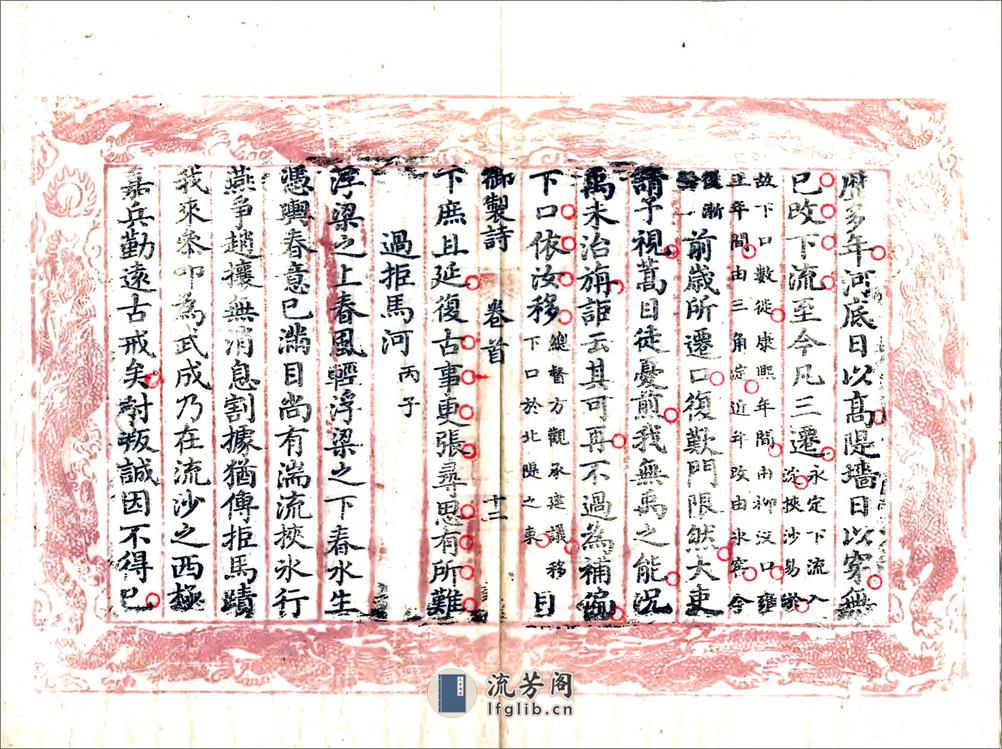 歷多年河底日以高隄墻日以穿無
已改下流至今凡三遷永定下流入
淀挾沙易淤
故下口數徙康熙年間由栁汊口雍
正年間由三角淀近年改由氷窖今
復漸
前歲所遷口復歎門限然大吏
請予視蒿目徒憂煎我無禹之能况
禹未治旃詎云其可再不過為補偏
下口依汝移總督方觀承建議移
下口於北隄之東
目
御製詩 卷首 十二
下庶且延復古事更張尋思有所難
過拒馬河 丙子
浮梁之上春風輕浮梁之下春水生
憑輿春意已滿目尚有湍流挾氷行
燕爭趙攘無消息割據猶傳拒馬蹟
我來叅叩為武成乃在流沙之西極
嘉兵勤遠古戒矣討叛誠因不得已
流芳阁
lfglib.cn